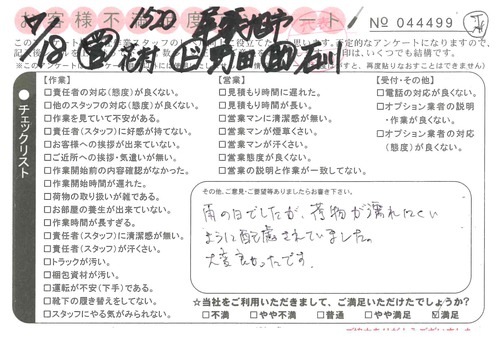 お客様不満足度アンケート
No 044499
7/18 1520
チェックリスト
【作業】
□責任者の対応(態度)が良くない。
□他のスタッフの対応(態度)が良くない。
□作業を見ていて不安がある。
□責任者(スタッフ)に好感が持てない。
□お客様への挨拶が出来ていない。
□ご近所への挨拶・気遣いが無い。
□作業開始前の内容確認がなかった。
□作業開始時間が遅れた。
□荷物の取り扱いが雑である。
□お部屋の養生が出来ていない。
□作業時間が長すぎる。
□責任者(スタッフ)に清潔感が無い。
□責任者(スタッフ)が汗くさい。
□トラックが汚い。
□梱包資材が汚い。
□運転が不安(下手)である。
□靴下の履き替えをしてない。
□スタッフにやる気がみられない。
【営業】
□見積もり時間に遅れた。
□見積もり時間が長い。
□営業マンに清潔感が無い。
□営業マンが煙草くさい。
□営業マンが汗くさい。
□営業態度が良くない。
□営業の説明と作業が一致してない。
【受付・その他】
□電話の対応が良くない。
□オプション業者の説明・作業が良くない。
□オプション業者の対応(態度)が良くない。
その他、ご意見・ご要望等ありましたらお書き下さい。
雨の日でしたが、荷物が濡れにくい
ように配慮されていました。
大変良かったです。
☆当社をご利用いただきまして、ご満足いただけたでしょうか?
□不満 □やや不満 □普通 □やや満足 ☑満足